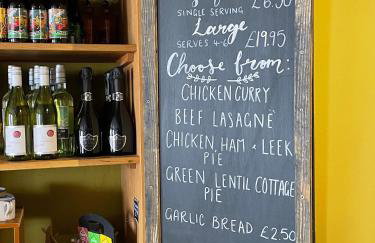 SINGLE SERVING £6.50
Large
SERVES 4-6 £19.95
Choose from:
CHICKEN CURRY
BEEF LASAGNE
CHICKEN, HAM & LEEK
PIE
GREEN LENTIL COTTAGE
PIE
GARLIC BREAD £2.50